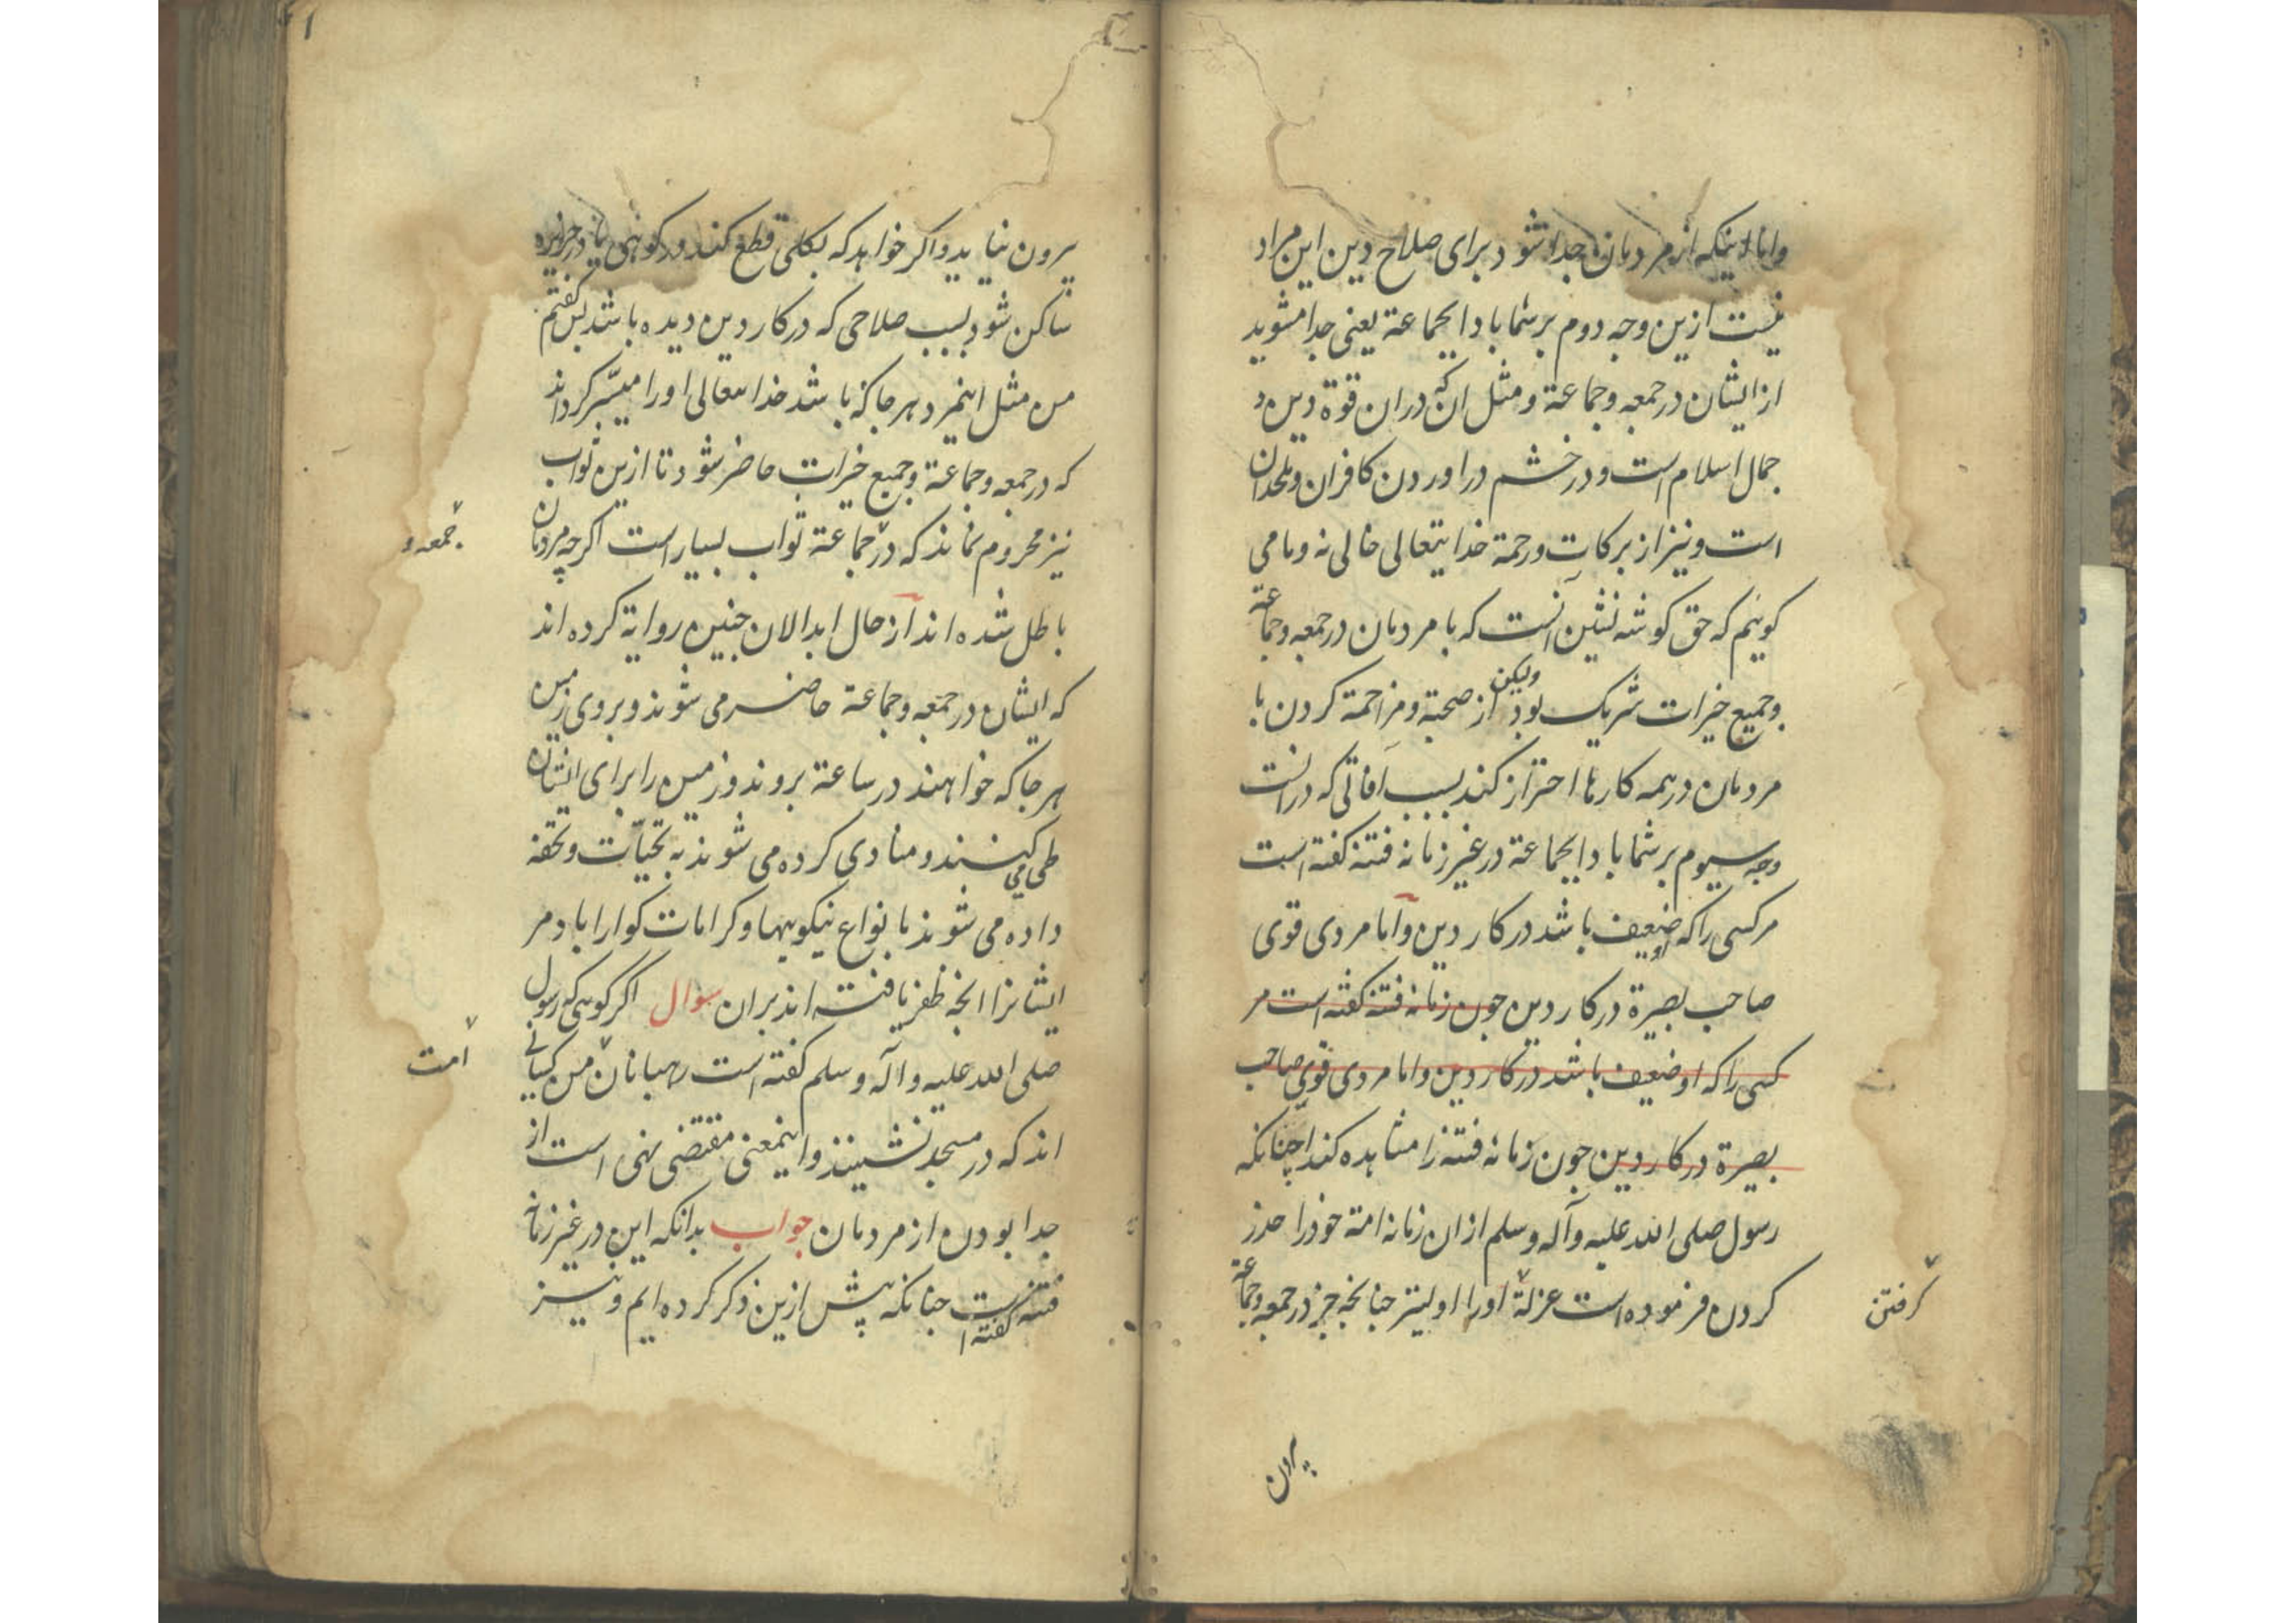 واما اینکه از مردمان جدا شود برای صلاح دین این مراد
نیست ازین وجه دوم بر شما بادا بجماعة یعنی جدا مشوید
از ایشان در جمعه و جماعة و مثل ان که دران قوة دین و
جمال اسلام است و در خشم دراوردن کافران و ملحدان
است و نیز از بركات و رحمة خدایتعالی خالی نه و ما می
کوئیم که حق کوشه نشین آنست که با مردمان در جمعه و جماعة
و جمیع خیرات شریک بود ولیکن از صحبة و مزاحمة کردن با
مردمان در همه کارها احتراز کند بسبب آفاتی که درانست
وجه سیوم بر شما بادا بجماعة در غیر زمانه فتنه کفته است
مر کسی را که او ضعیف باشد در کار دین و اما مردی قوی
صاحب بصیرة در کار دین جون زمانه فتنه کفته است مر
کسی را که او ضعیف باشد در کار دین و اما مردی قوی صاحب
بصیرة در کار دین جون زمانه فتنه را مشاهده کند چنانکه
رسول صلی الله علیه وآله وسلم ازان زمانه امة خود را حذر
کردن فرموده است عزلة اورا اولیتر جنانجه جز در جمعه و جماعة
کرفتن
بیرون
بیرون نیاید و اکر خواهد که بکلی قطع کند و در کوهی یا در جزیره
ساکن شود بسبب صلاحی که در کار دین دیده باشد پس کفتم
من مثل اینمرد هر جا که باشد خدایتعالی اورا میسر کرداند
که در جمعه و جماعة و جمیع خیرات حاضر شود تا ازین ثواب
نیز محروم نماند که در جماعة ثواب بسیار است اکرچه مردمان
جمعه و
باطل شده اند از حال ابدالان جنین روایة کرده اند
که ایشان در جمعه و جماعة حاضر می شوند و بروی زمین
هر جا که خواهند در ساعة بروند و زمین را برای ایشان
طی می کنند و منادی کرده می شوند به تحیات و تحفه
داده می شوند با نواع نیکویها و کرامات کوارا باد مر
ایشانرا انجه ظفر یافته اند بران سوال اکر کوئی که رسول
صلی الله علیه وآله وسلم کفته است رهبانان من کسانی
امت
اند که در مسجد نشینند و اینمعنی مقتضی نهی است از
جدا بودن از مردمان جواب بدانکه این در غیر زمانه
فتنه کفته است جنانکه پیش ازین ذکر کرده ایم و نیز